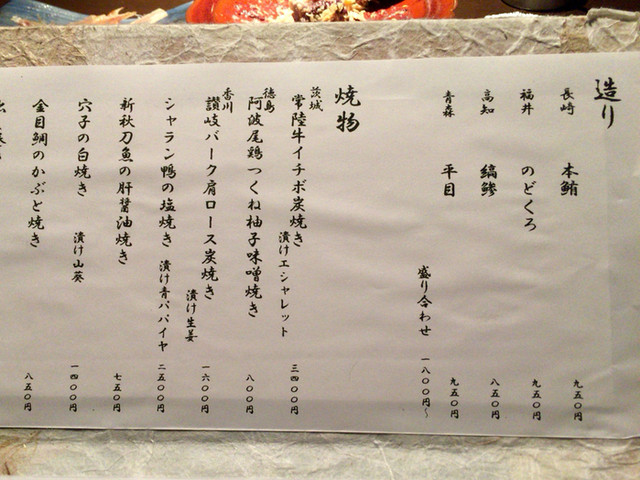 造り
長崎 本鮪 九五〇円
福井 のどくろ 九五〇円
高知 縞鯵 八五〇円
青森 平目 九五〇円
盛り合わせ 一八〇〇円〜
焼物
茨城 常陸牛イチボ炭焼き 漬けエシャレット 三四〇〇円
徳島 阿波尾鶏つくね柚子味噌焼き 八〇〇円
香川 讃岐パーク肩ロース炭焼き 漬け生姜 一六〇〇円
シャラン鴨の塩焼き 漬け青パパイヤ 二五〇〇円
新秋刀魚の肝醤油焼き 七五〇円
穴子の白焼き 漬け山葵 一四〇〇円
金目鯛のかぶと焼き 八五〇円